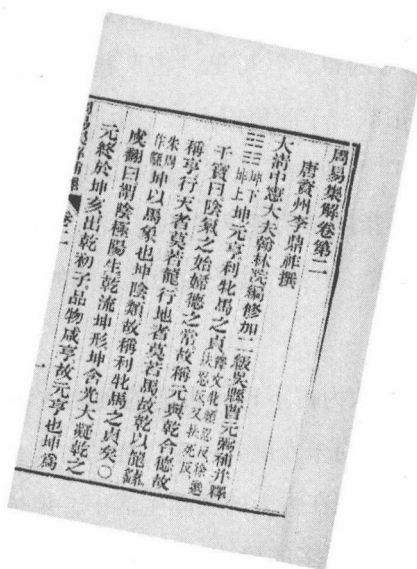 周易集解卷第二
唐資州李鼎祚撰
大清中憲大夫翰林院編修加二級歙縣曹元弼補幷釋
䷁坤下坤上坤元亨利牝馬之貞釋文牝頻忍反徐邈扶忍反又扶死反
干寶曰陰氣之始婦德之常故稱元與乾合德故
稱亨行天者莫若龍行地者莫若馬故乾以龍繇
朱周作隆坤以馬象也坤陰類故稱利牝馬之貞矣〇
虞翻曰謂陰極陽生乾流坤形坤含光大凝乾之
元終於坤亥出乾初子品物咸亨故元亨也坤爲
卷二
一